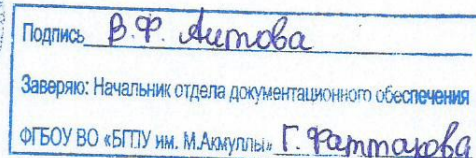 Подпись В.Ф. Аитова
Заверяю: Начальник отдела документационного обеспечения
ФГБОУ ВО «БГПУ им. М.Акмуллы» Г. Фаттахова